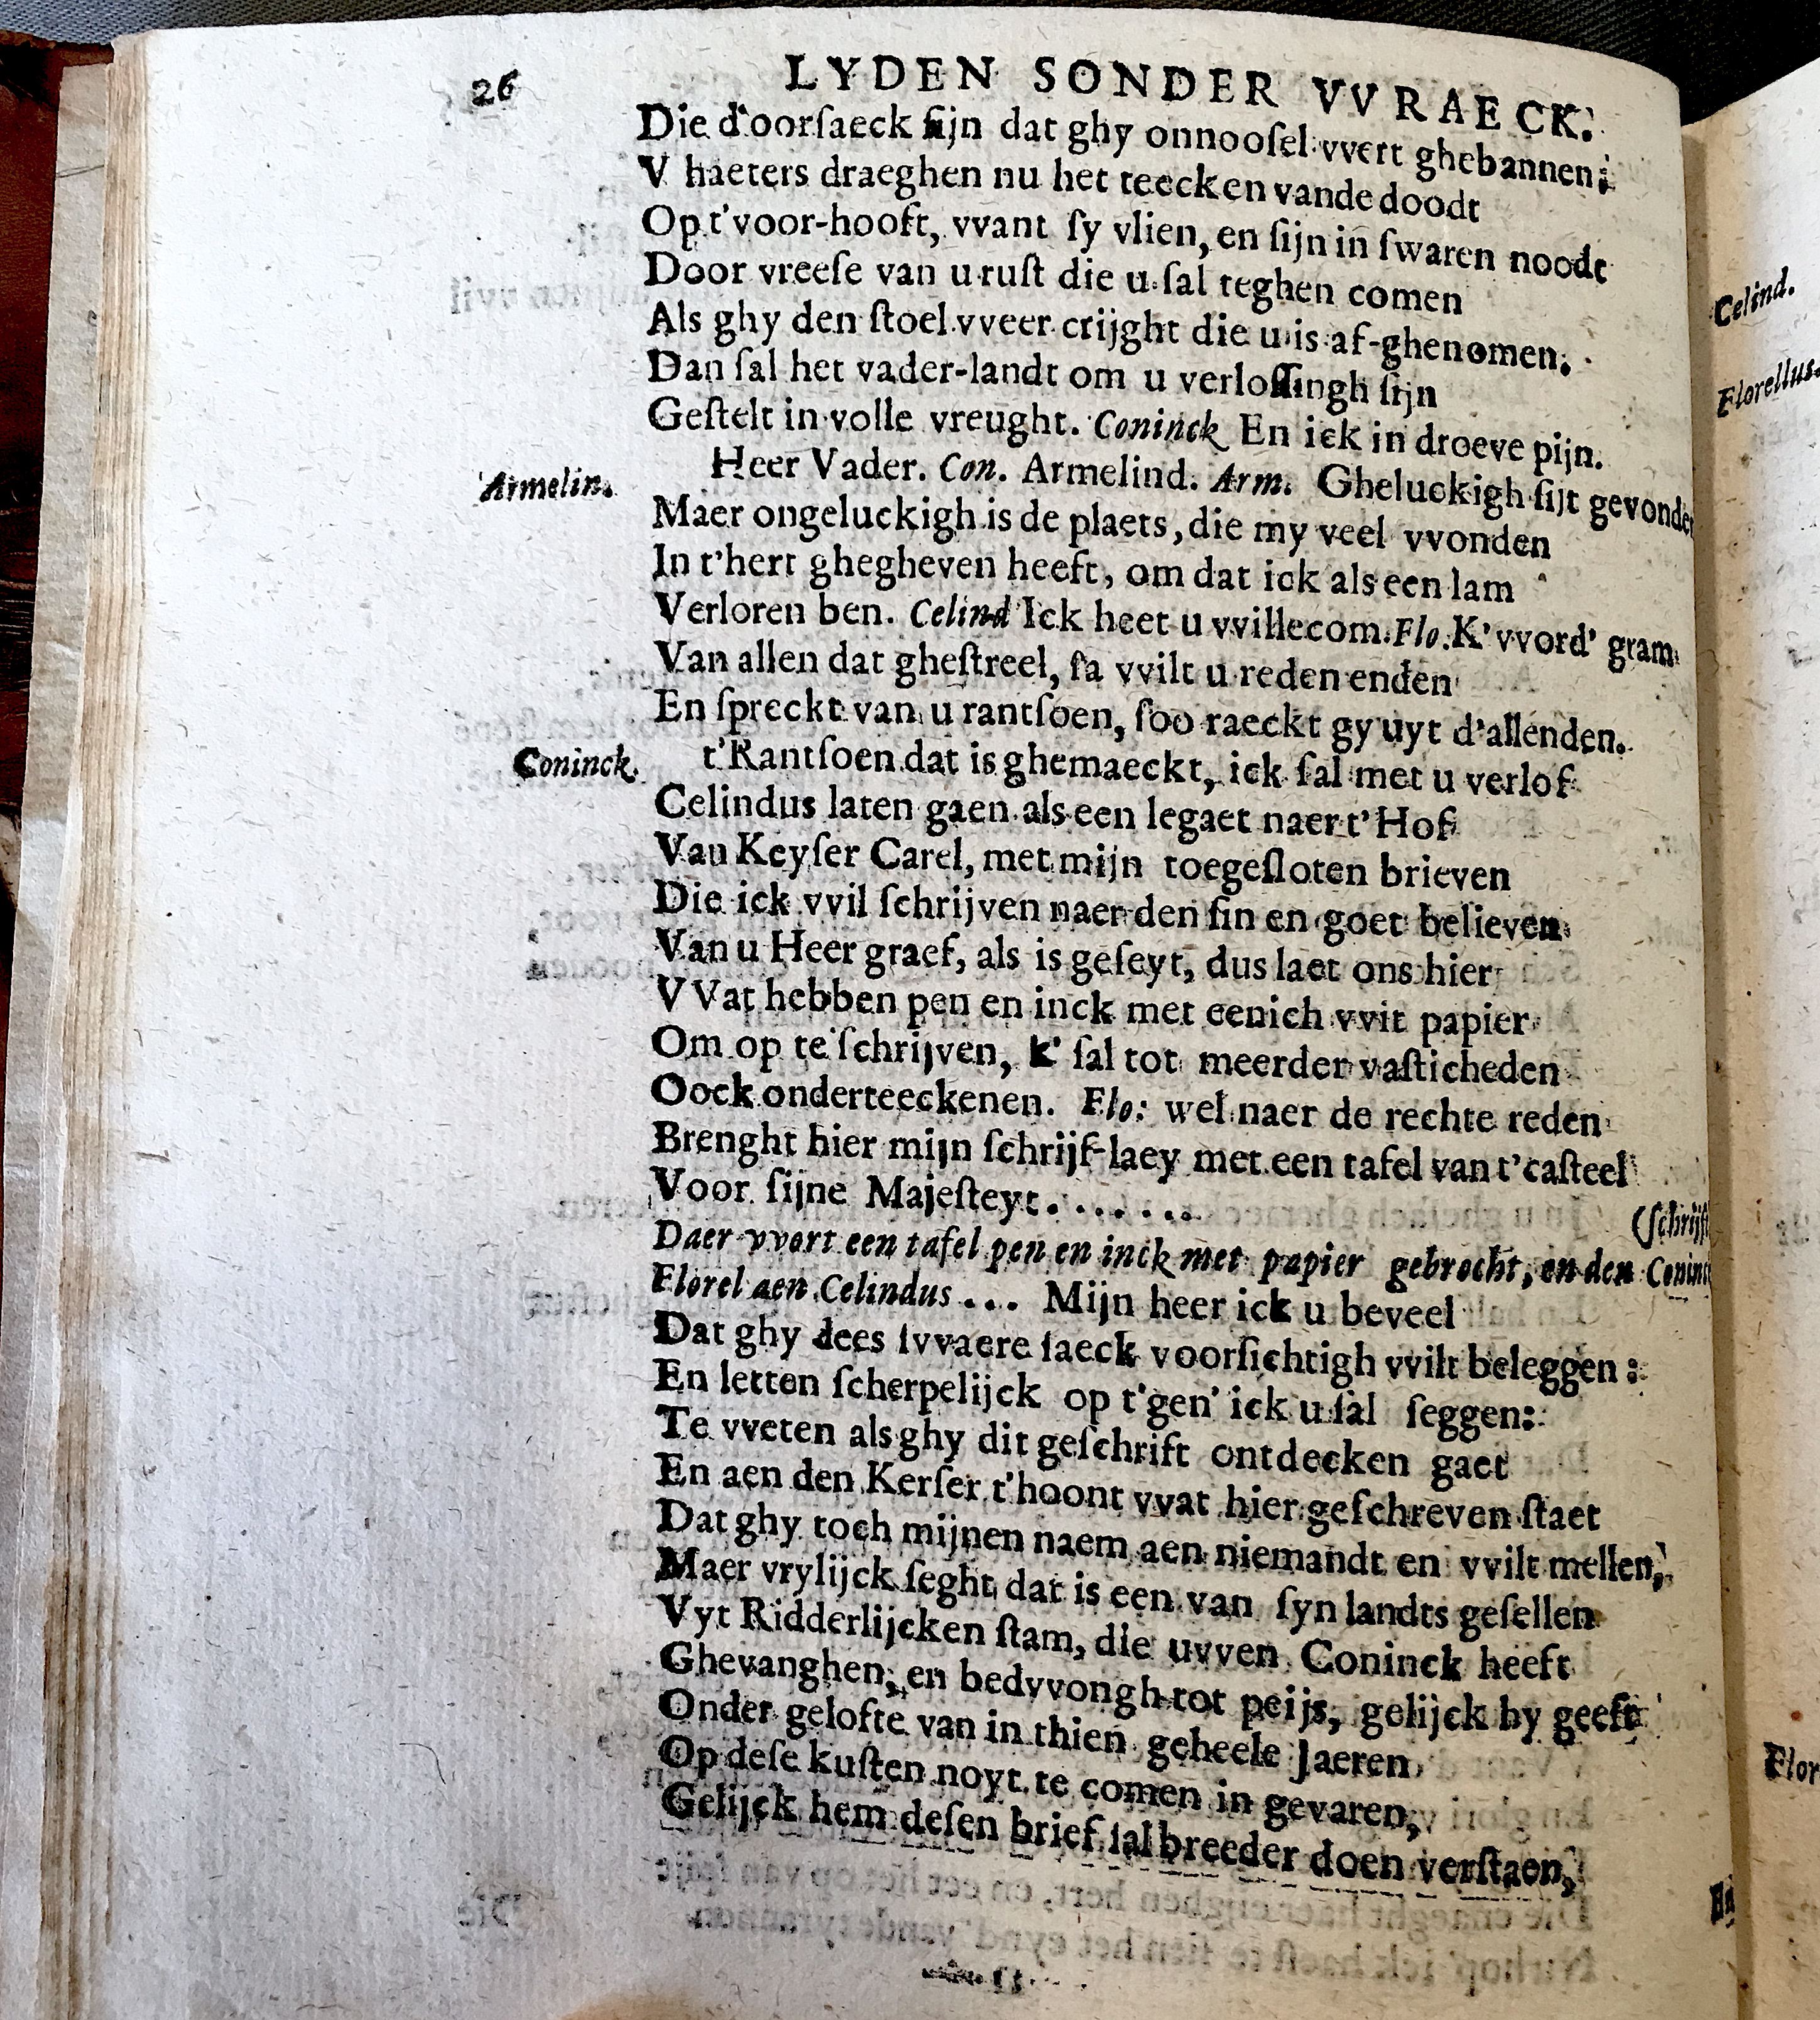 26 LYDEN SONDER VVRAECK.
Die d'oorſaeck ſijn dat ghy onnooſel vvert ghebannen;
V haeters draeghen nu het teecken vande doodt
Op t'voor-hooft, vvant ſy vlien, en ſijn in ſwaren noodt
Door vreeſe van u ruſt die u ſal teghen comen
Als ghy den ſtoel vveer crijght die u is af-ghenomen.
Dan ſal het vader-landt om u verloſſingh ſijn
Geſtelt in volle vreught. Coninck En ick in droeve pijn.
Armelin. Heer Vader. Con. Armelind. Arm. Gheluckigh ſijt gevonde
Maer ongeluckigh is de plaets, die my veel vvonden
In t'hert ghegheven heeft, om dat ick als een lam
Verloren ben. Celind Ick heet u vvillecom. Flo. K'vvord' gram
Van allen dat gheſtreel, ſa vvilt u reden enden
En ſpreckt van u rantſoen, ſoo raeckt gy uyt d'allenden.
Coninck. t'Rantſoen dat is ghemaeckt, ick ſal met u verlof
Celindus laten gaen als een legaet naer t'Hof
Van Keyſer Carel, met mijn toegeſloten brieven
Die ick vvil ſchrijven naer den ſin en goet believen
Van u Heer graef, als is geſeyt, dus laet ons hier
VVat hebben pen en inck met eenich vvit papier
Om op te ſchrijven, k' ſal tot meerder vaſticheden
Oock onderteeckenen. Flo: wel naer de rechte reden
Brenght hier mijn ſchrijf-laey met een tafel van t'caſteel
Voor ſijne Majeſteyt.......
(ſchrijft
Daer vvort een tafel pen en inck met papier gebrocht, en den Coninc
Florel aen Celindus... Mijn heer ick u beveel
Dat ghy dees ſvvaere ſaeck voorſichtigh vvilt beleggen:
En letten ſcherpelijck op t'gen' ick u ſal ſeggen:
Te vveten als ghy dit geſchrift ontdecken gaet
En aen den Kerſer t'hoont vvat hier geſchreven ſtaet
Dat ghy toch mijnen naem aen niemandt en vvilt mellen,
Maer vrylijck ſeght dat is een van ſyn landts geſellen
Vyt Ridderlijcken ſtam, die uvven Coninck heeft
Ghevanghen, en bedvvongh tot peijs, gelijck hy geeft
Onder gelofte van in thien geheele Jaeren
Op deſe kuſten noyt te comen in gevaren,
Gelijck hem deſen brief ſal breeder doen verſtaen,
Die
Celind.
Florellus.
Flor